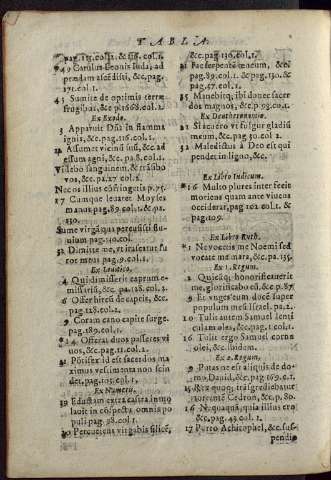 TABLA.
pag. 155. col. 2. & 158. col. 1.
49 Catulus Leonis Iuda, ad
prædam ascendisti, &c. pag.
171. col. 1.
43 Sumite de optimis terræ
frugibus, &c. p. 168. col. 2.
Ex Exodo.
3 Apparuit Dñs in flamma
ignis, &c. pag. 116. col. 1.
12 Assumet vicinũ suũ, &c. ad
esum agni, &c. pa. 8. col. 1.
Videbo sanguinem, & trãsibo
vos, &c. pa. 27. col. 2.
Nec os illius cõfringetis p. 75.
17 Cumque leuaret Moyses
manus, pag. 89. col. 1. & pa.
130.
Sume virgã qua percussisti flu-
uium pag. 130. col.
32 Dimitte me, vt irascatur fu-
ror meus pag. 9. col. 1.
Ex Leuitico.
4 Qui dimisserit caprum e-
missariũ, &c. pa. 128. col. 2.
6 Offer hircũ de capris, &c.
pag. 128. col. 1.
9 Coram cano capite surge.
pag. 189. col. 1.
14 Offerat duos passeres vi
uos, &c. pag. 11. col. 2.
21 Põtifex id est sacerdos ma
ximus vestimenta non scin
det, pag. 103. col. 1.
Ex Numeris.
19 Eductam extra castra, immo
lauit in cõspectu omnis po
puli pag. 98. col. 1.
20 Percutiens virga bis silicẽ,
&c. pag. 130. col. 1.
21 Fac serpentẽ æneum, &c.
pag. 89. col. 1. & pag. 130. &
pag. 67. col. 1.
35 Manebitq; ibi donec sacer
dos magnus, &c. p. 99. co. 1.
Ex Deutheronomio.
32 Si acuero vt fulgur gladiũ
meum, &c. pag. 50. col. 2.
32 Maledictus à Deo est qui
pendet in ligno, &c.
Ex Libro Iudicum.
16 Multo plures interfecit
moriens quam ante viuens
occiderat, pag. 102. col. 1. &
pag. 109.
Ex Libro Ruth.
1 Ne vocetis me Noemi sed
vocate me mara, &c. pa. 135.
Ex 1. Regum.
2 Quicũq; honorificauerit
me, glorificabo eũ, &c. p. 87.
9 Et vnges eum ducẽ super
populum meũ Israel. pa. 2.
10 Tulit autem Samuel lenti
culam olei, &c. pag. 1. col. 1.
16 Tulit ergo Samuel cornu
olei, &c. ibidem.
Ex 2. Regum.
9 Putas ne est aliquis de do-
mo Dauid, &c. pag. 169. c. 1.
15 Rex quoq; trãsgrediebatur
torrente Cedron, &c. p. 80.
16 Nequaquã, quia illius ero
&c. pag. 43. col. 1.
17 Porro Achitophel, &c. sus-
pendio